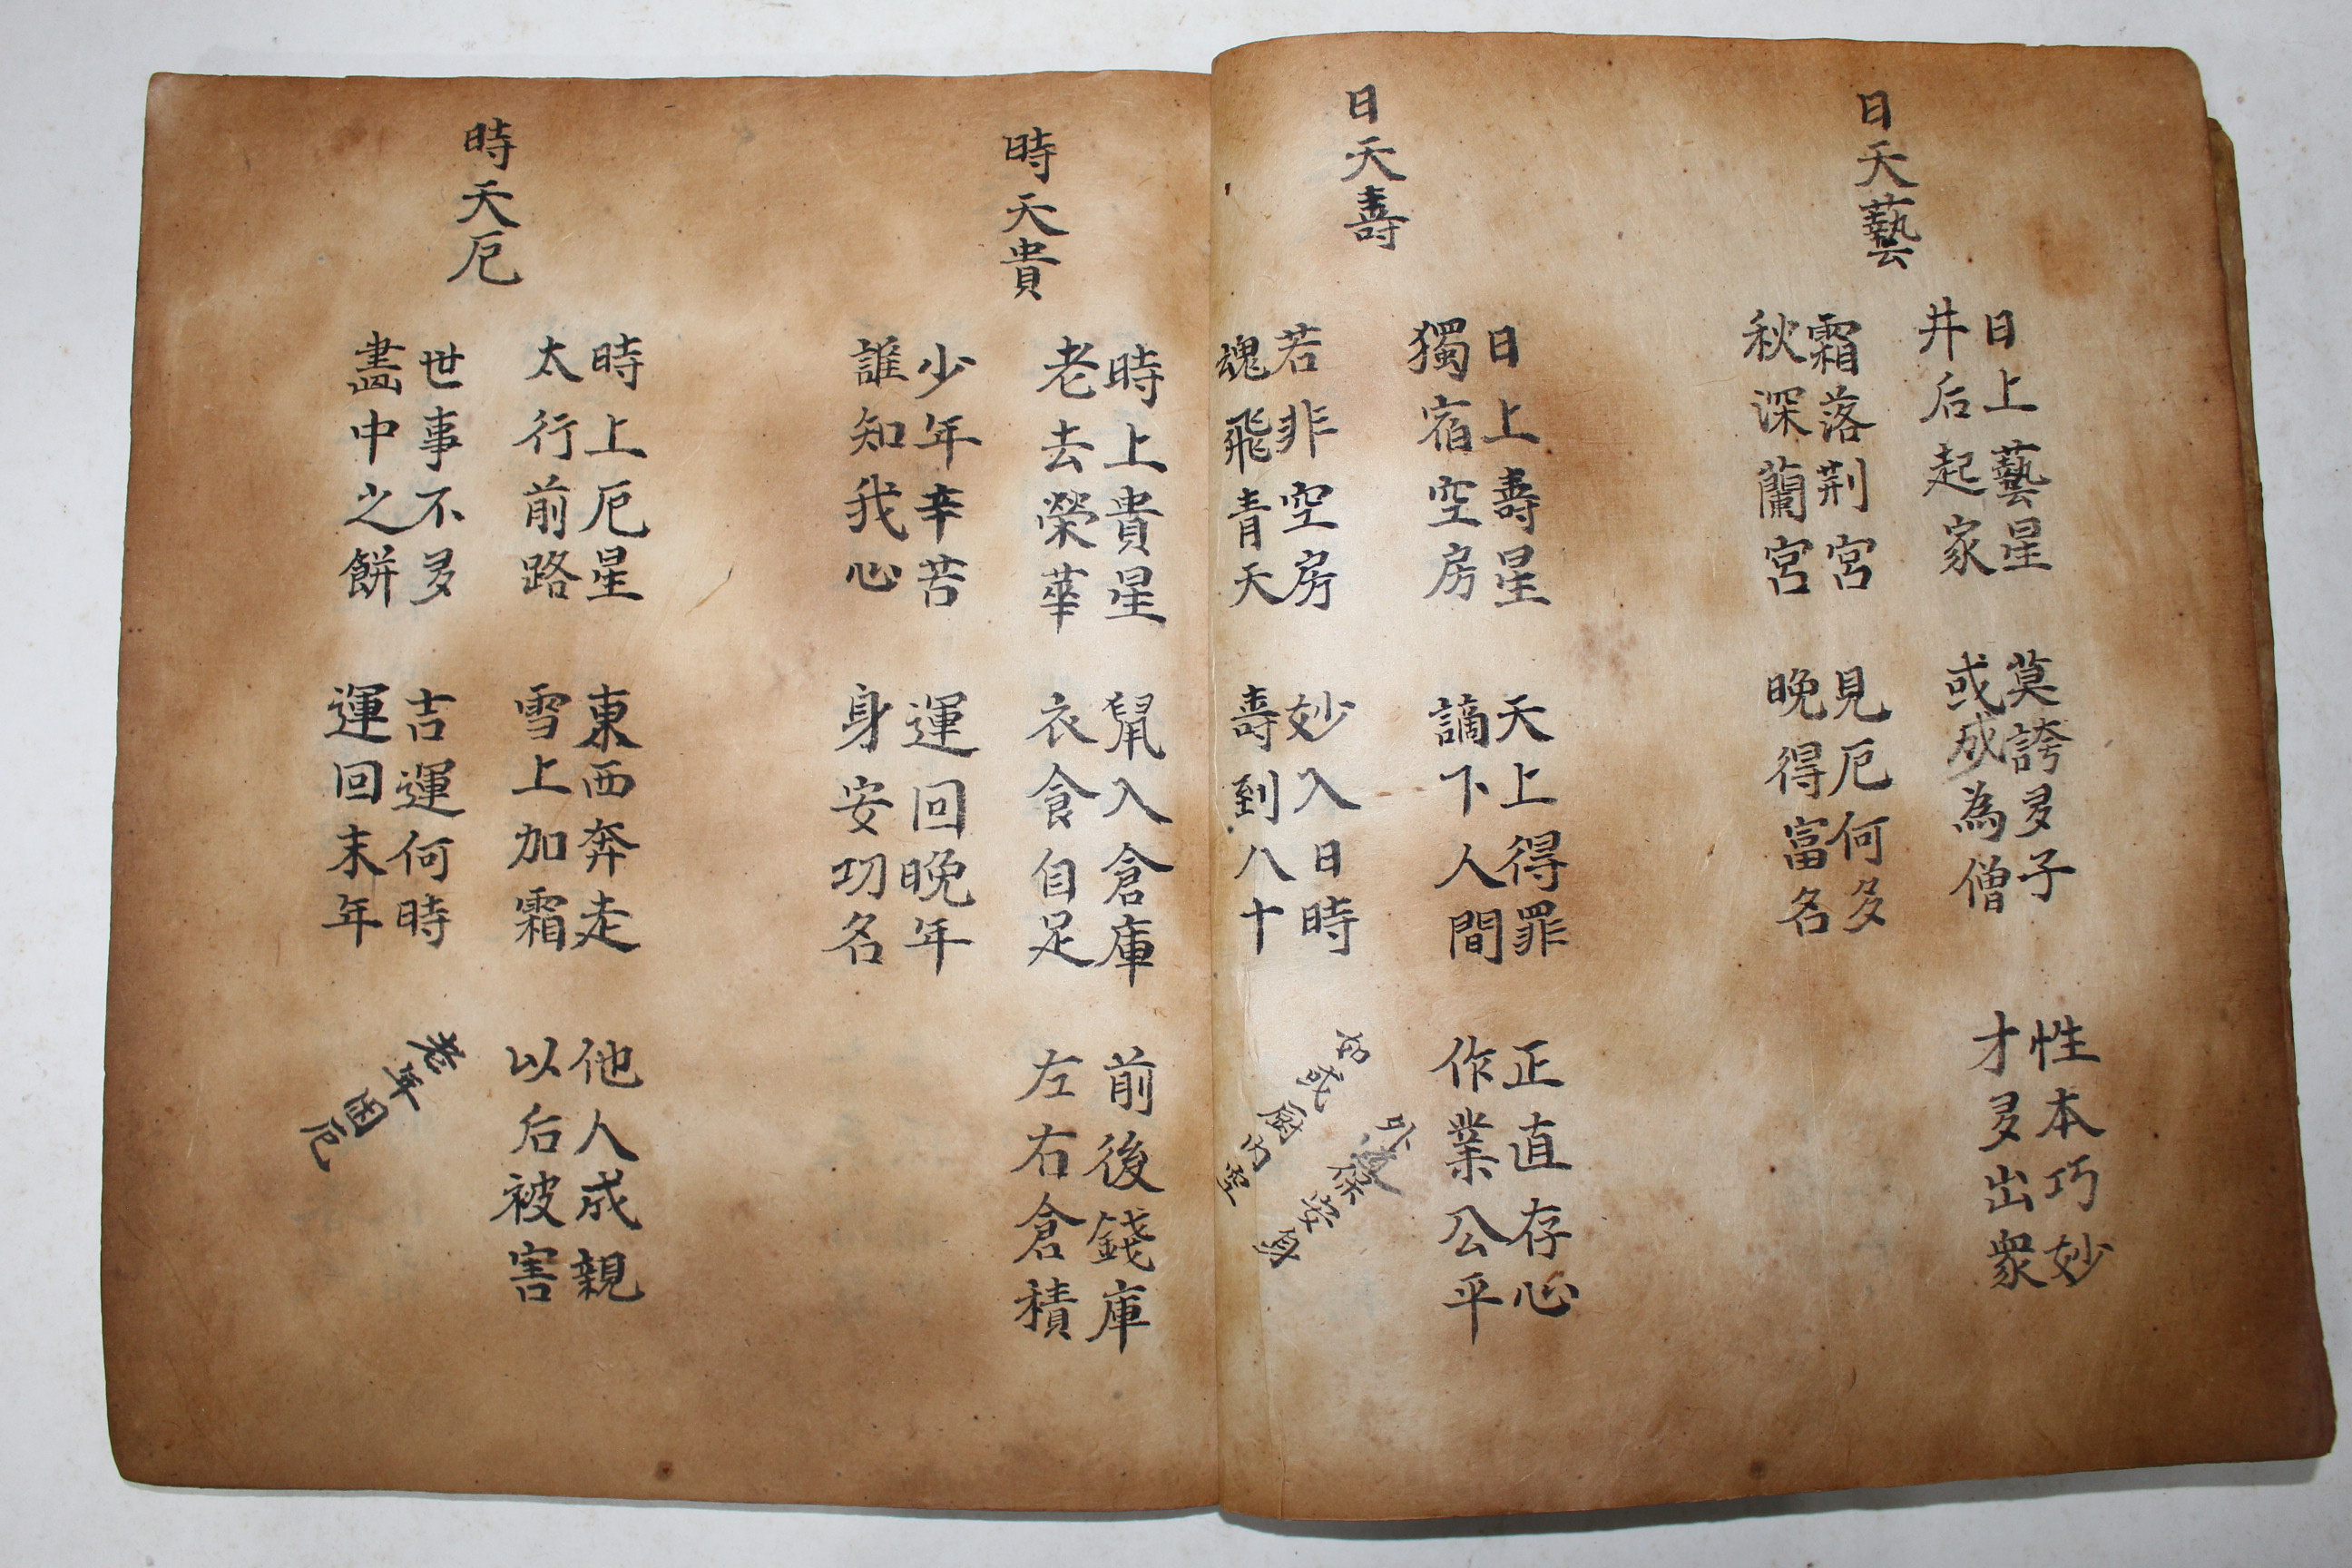 日天藝
日上藝星
井后起家
莫誇多子
或成為僧
性本巧妙
才多出衆
霜落荆宮
秋深蘭宮
見厄何多
晩得富名
日天壽
日上壽星
獨宿空房
天上得罪
謫下人間
正直存心
作業公平
若非空房
魂飛青天
妙入日時
壽到八十
安身
時天貴
時上貴星
老去榮華
鼠入倉庫
衣食自足
前後錢庫
左右倉積
少年辛苦
誰知我心
運回晩年
身安功名
時天厄
時上厄星
太行前路
東西奔走
雪上加霜
他人成親
以后被害
世事不多
畵中之餠
吉運何時
運回末年
老年困厄